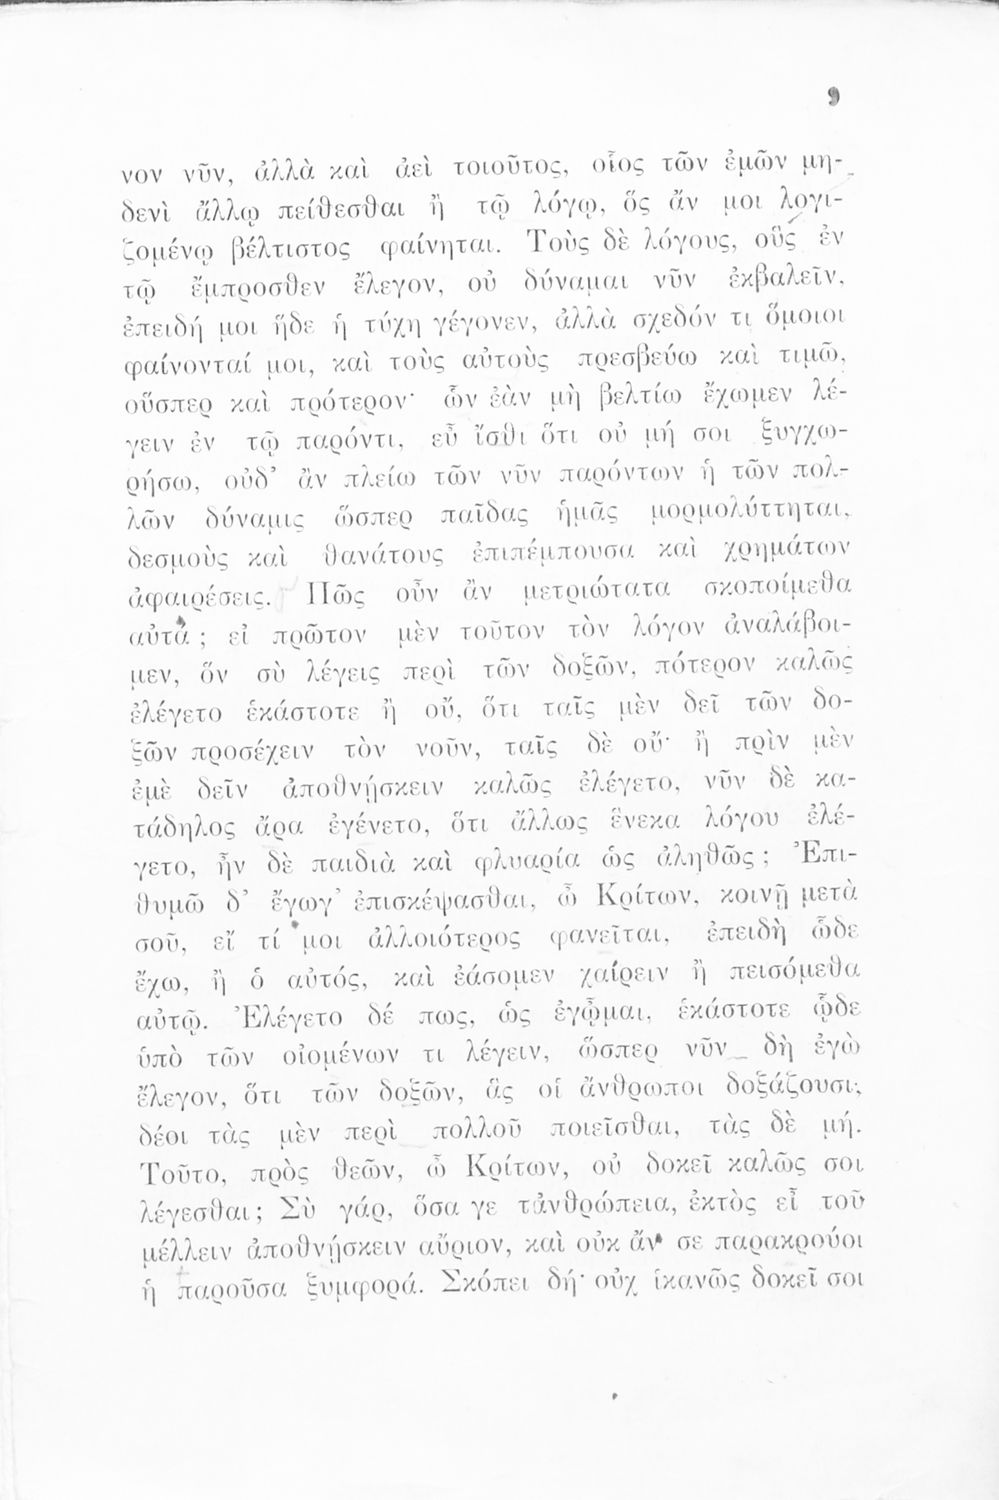 9
νον νῦν, ἀλλὰ καὶ ἀεὶ τοιοῦτος, οἷος τῶν ἐμῶν μη-
δενὶ ἄλλῳ πείθεσθαι ἢ τῷ λόγῳ, ὃς ἄν μοι λογι-
ζομένῳ βέλτιστος φαίνηται. Τοὺς δὲ λόγους, οὓς ἐν
τῷ ἔμπροσθεν ἔλεγον, οὐ δύναμαι νῦν ἐκβαλεῖν,
ἐπειδή μοι ἥδε ἡ τύχη γέγονεν, ἀλλὰ σχεδόν τι ὅμοιοι
φαίνονταί μοι, καὶ τοὺς αὐτοὺς πρεσβεύω καὶ τιμῶ,
οὕσπερ καὶ πρότερον· ὧν ἐὰν μὴ βελτίω ἔχωμεν λέ-
γειν ἐν τῷ παρόντι, εὖ ἴσθι ὅτι οὐ μή σοι ξυγχω-
ρήσω, οὐδ' ἂν πλείω τῶν νῦν παρόντων ἡ τῶν πολ-
λῶν δύναμις ὥσπερ παῖδας ἡμᾶς μορμολύττηται,
δεσμοὺς καὶ θανάτους ἐπιπέμπουσα καὶ χρημάτων
ἀφαιρέσεις. Πῶς οὖν ἂν μετριώτατα σκοποίμεθα
αὐτά ; εἰ πρῶτον μὲν τοῦτον τὸν λόγον ἀναλάβοι-
μεν, ὅν σὺ λέγεις περὶ τῶν δοξῶν, πότερον καλῶς
ἐλέγετο ἑκάστοτε ἢ οὔ, ὅτι ταῖς μὲν δεῖ τῶν δο-
ξῶν προσέχειν τὸν νοῦν, ταῖς δὲ οὔ· ἢ πρὶν μὲν
ἐμὲ δεῖν ἀποθνήσκειν καλῶς ἐλέγετο, νῦν δὲ κα-
τάδηλος ἄρα ἐγένετο, ὅτι ἄλλως ἕνεκα λόγου ἐλέ-
γετο, ἦν δὲ παιδιὰ καὶ φλυαρία ὡς ἀληθῶς ; Ἐπι-
θυμῶ δ' ἔγωγ' ἐπισκέψασθαι, ὦ Κρίτων, κοινῇ μετὰ
σοῦ, εἴ τί μοι ἀλλοιότερος φανεῖται, ἐπειδὴ ὧδε
ἔχω, ἢ ὁ αὐτός, καὶ ἐάσομεν χαίρειν ἢ πεισόμεθα
αὐτῷ. Ἐλέγετο δέ πως, ὡς ἐγᾦμαι, ἑκάστοτε ᾧδε
ὑπὸ τῶν οἰομένων τι λέγειν, ὥσπερ νῦν δὴ ἐγὼ
ἔλεγον, ὅτι τῶν δοξῶν, ἃς οἱ ἄνθρωποι δοξάζουσι,
δέοι τὰς μὲν περὶ πολλοῦ ποιεῖσθαι, τὰς δὲ μή.
Τοῦτο, πρὸς θεῶν, ὦ Κρίτων, οὐ δοκεῖ καλῶς σοι
λέγεσθαι; Σὺ γάρ, ὅσα γε τἀνθρώπεια, ἐκτὸς εἶ τοῦ
μέλλειν ἀποθνήσκειν αὔριον, καὶ οὐκ ἄν σε παρακρούοι
ἡ παροῦσα ξυμφορά. Σκόπει δή· οὐχ ἱκανῶς δοκεῖ σοι